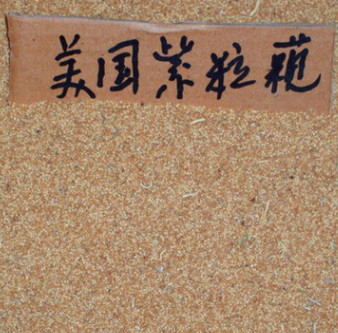 美国紫粒苋